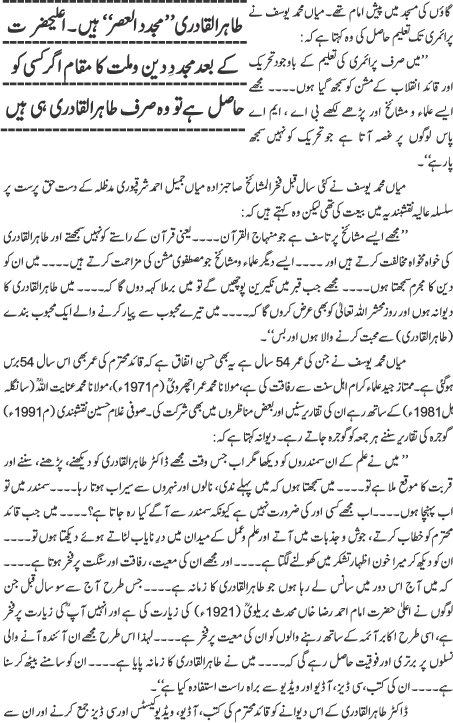 طاہرالقادری ’’مجدد العصر‘‘ ہیں۔ اعلیحضرت
کے بعد مجدد دین و ملت کا مقام اگر کسی کو
حاصل ہے تو وہ صرف طاہرالقادری ہی ہیں
گاؤں کی مسجد میں پیش امام تھے۔ میاں محمد یوسف نے
پرائمری تک تعلیم حاصل کی وہ کہتا ہے کہ:
’’میں صرف پرائمری کی تعلیم کے باوجود تحریک
اور قائد انقلاب کے مشن کو سمجھ گیا ہوں۔۔۔۔ مجھے
ایسے علماء و مشائخ اور پڑھے لکھے بی اے، ایم اے
پاس لوگوں پر غصہ آتا ہے جو تحریک کو نہیں سمجھ
پا رہے‘‘۔
میاں محمد یوسف نے کئی سال قبل فخر المشائخ صاحبزادہ میاں جمیل احمد شرقپوری مدظلہ کے دست حق پرست پر
سلسلہ عالیہ نقشبندیہ میں بیعت کی تھی لیکن وہ کہتے ہیں کہ:
’’مجھے ایسے مشائخ پر تاسف ہے جو منہاج القرآن۔۔۔۔ یعنی قرآن کے راستے کو نہیں سمجھتے اور طاہرالقادری
کی خواہ مخواہ مخالفت کرتے ہیں اور ۔۔۔۔ ایسے دیگر علماء و مشائخ جو مصطفوی مشن کی مزاحمت کرتے ہیں۔۔۔۔ میں ان کو
دین کا مجرم سمجھتا ہوں۔۔۔۔ مجھے جب قبر میں نکیرین پوچھیں گے تو میں برملا کہہ دوں گا کہ۔۔۔۔ میں طاہرالقادری کا
دیوانہ ہوں اور روز محشر اللہ تعالیٰ کو بھی عرض کروں گا کہ۔۔۔۔ میں تیرے محبوب سے پیار کرنے والے ایک محبوب بندے
(طاہرالقادری) سے محبت کرنے والا ہوں اور بس‘‘۔
میاں محمد یوسف نے جن کی عمر 54 سال ہے یہ بھی حسن اتفاق ہے کہ قائد محترم کی عمر بھی اس سال 54 برس
ہوگئی ہے۔ ممتاز جید علماء کرام اہل سنت سے رفاقت کی ہے، مولانا محمد عمر اچھروی (م 1971ء)، مولانا محمد عنایت اللہ (سانگلہ
ہل 1981ء) کے ساتھ رہے ان کی تقاریر سنیں اور بعض مناظروں میں بھی شرکت کی۔ صوفی غلام حسین نقشبندی (م 1991ء)
گوجرہ کی تقاریر سننے ہر جمعہ کو گوجرہ جاتے رہے۔ دیوانہ کہتا ہے کہ:
’’میں نے علم کے ان سمندروں کو دیکھا مگر اب جس وقت مجھے ڈاکٹر طاہرالقادری کو دیکھنے، پڑھنے، سننے اور
قربت کا موقع ملا ہے تو۔۔۔۔ میں سمجھتا ہوں کہ میں پہلے ندی، نالوں اور نہروں سے سیراب ہوتا رہا۔۔۔۔ سمندر میں تو
اب پہنچا ہوں۔۔۔۔ اب مجھے کسی اور کی ضرورت نہیں ہے کیونکہ سمندر سے آگے کیا رہ جاتا ہے؟۔۔۔۔ میں جب قائد
محترم کو خطاب کرتے، جوش و جذبات میں آتے اور علم و عمل کے میدان میں درنایاب لٹاتے ہوئے دیکھتا ہوں تو۔۔۔۔
ان کو دیکھ کر میرا خون اظہار تشکر میں کھولنے لگتا ہے۔۔۔۔ اور مجھے ان کی معیت، رفاقت اور سنگت پر فخر ہوتا ہے۔۔۔۔
کہ میں آج اس دور میں سانس لے رہا ہوں جو طاہرالقادری کا زمانہ ہے۔۔۔۔ جس طرح آج سے سو سال قبل جن
لوگوں نے اعلیٰ حضرت امام احمد رضا خاں محدث بریلوی (1921ء) کی زیارت کی ہے اور انہیں آپ کی زیارت پر فخر
ہے، اسی طرح اکابر آئمہ کے ساتھ رہنے والوں کو ان کی معیت پر فخر ہے۔۔۔۔ لہذا اس طرح مجھے ان آئندہ آنے والی
نسلوں پر برتری اور فوقیت حاصل رہے گی۔۔۔۔ میں نے طاہرالقادری کا زمانہ پایا ہے۔۔۔۔ ان کو سامنے بیٹھ کر سنا
ہے۔۔۔۔ ان کی کتب، سی ڈیز، آڈیو اور ویڈیو سے براہ راست استفادہ کیا ہے‘‘۔
ڈاکٹر طاہرالقادری کے اس دیوانے کو قائد محترم کی کتب، آڈیو، ویڈیو کیسٹس اور سی ڈیز جمع کرنے اور ان سے